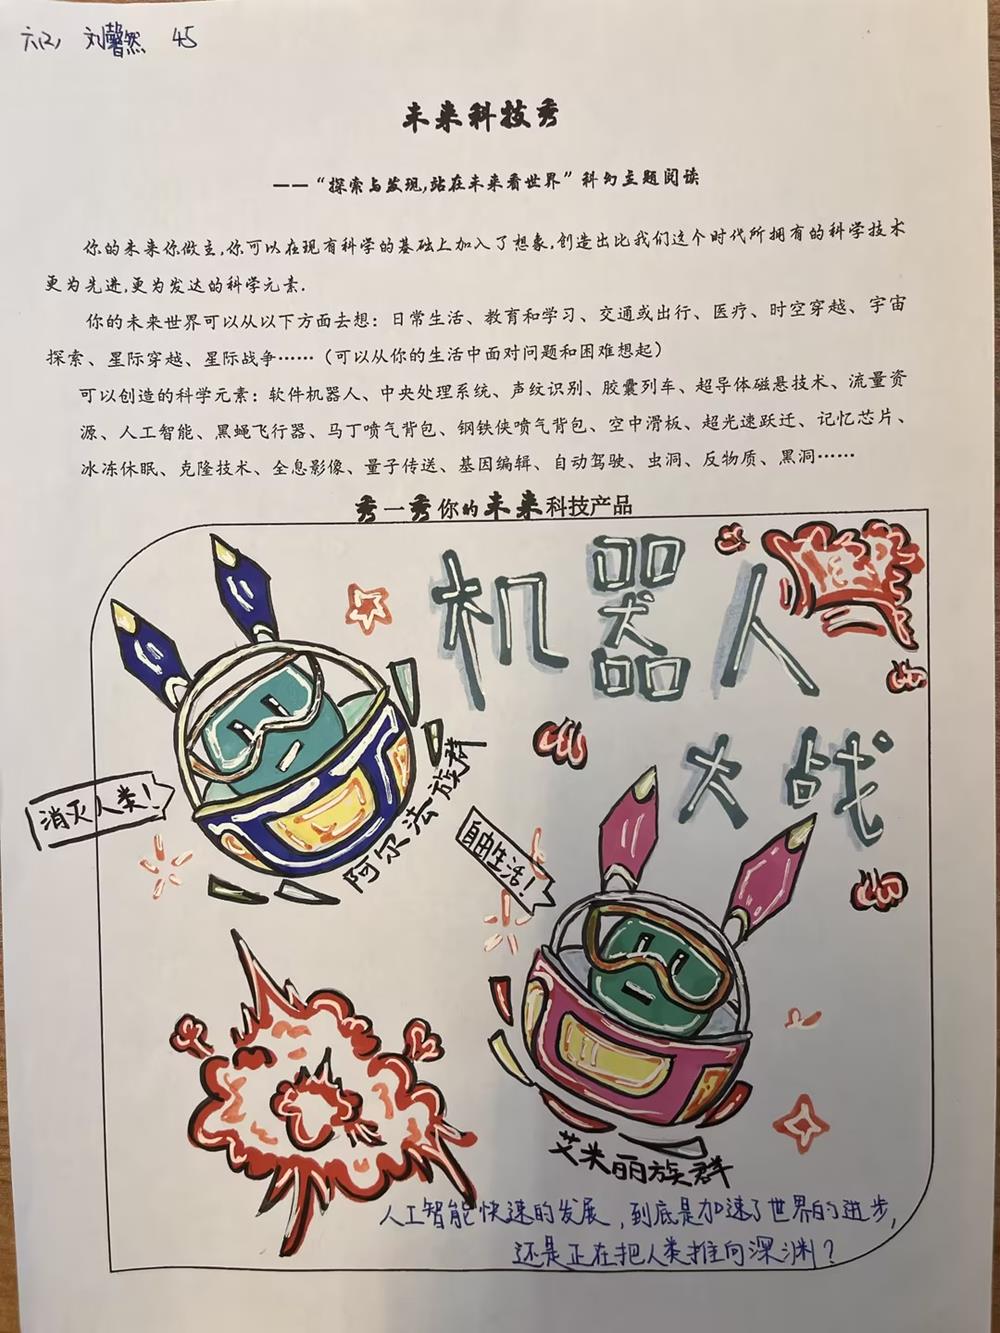 六(2) 刘馨然 45
未来科技秀
——“探索与发现,站在未来看世界”科幻主题阅读
你的未来你做主,你可以在现有科学的基础上加入了想象,创造出比我们这个时代所拥有的科学技术
更为先进,更为发达的科学元素.
你的未来世界可以从以下方面去想：日常生活、教育和学习、交通或出行、医疗、时空穿越、宇宙
探索、星际穿越、星际战争……（可以从你的生活中面对问题和困难想起）
可以创造的科学元素：软件机器人、中央处理系统、声纹识别、胶囊列车、超导体磁悬技术、流量资
源、人工智能、黑蝇飞行器、马丁喷气背包、钢铁侠喷气背包、空中滑板、超光速跃迁、记忆芯片、
冰冻休眠、克隆技术、全息影像、量子传送、基因编辑、自动驾驶、虫洞、反物质、黑洞……
秀一秀你的未来科技产品
机器人
大战
消灭人类！
阿尔法族群
自由生活！
艾米丽族群
人工智能快速的发展，到底是加速了世界的进步，
还是正在把人类推向深渊？